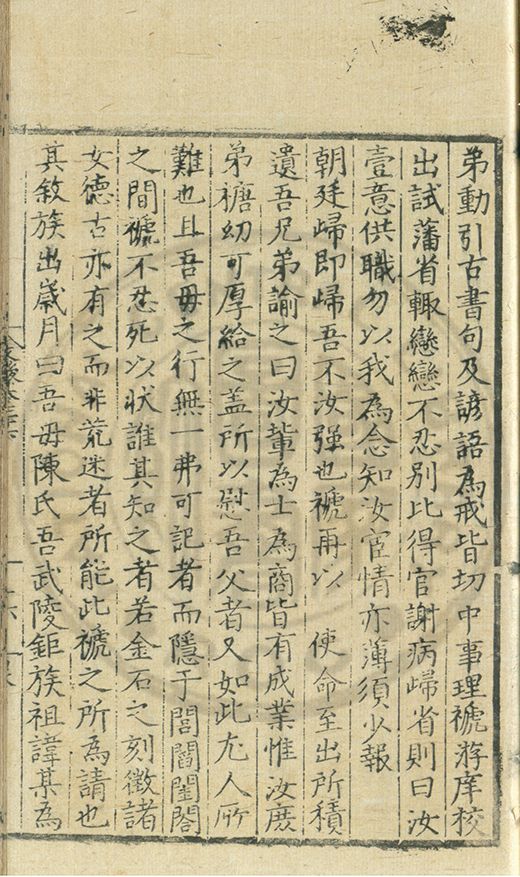 弟動引古書句及諺語為戒皆切中事理褫游庠校
出試藩省輙戀戀不忍別比得官謝病歸省則曰汝
壹意供職勿以我為念知汝宦情亦薄須少報
朝廷歸即歸吾不汝强也褫再以　使命至出所積
遺吾兄弟諭之曰汝輩為士為商皆有成業惟汝庶
弟禟幼可厚給之盖所以慰吾父者又如此尤人所
難也且吾毋之行無一弗可記者而隱于閭閻閨閤
之間褫不忍死以狀誰其知之者若金石之刻徵諸
女德古亦有之而非荒迷者所能此褫之所為請也
其敘族出歲月曰吾毋陳氏吾武陵鉅族祖諱某為